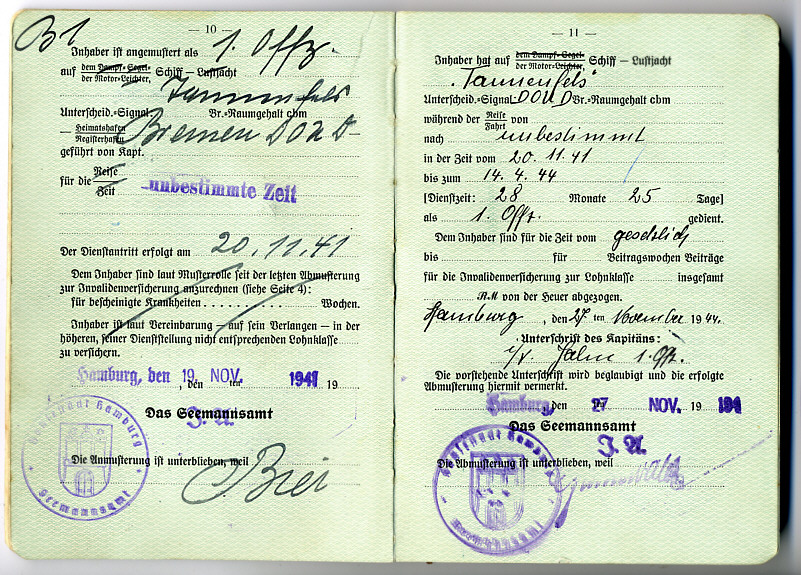 B1
— 10 —
Inhaber ist angemustert als 1. Offz.
auf dem Dampf-Segel- der Motor-Leichter, Schiff — Lustjacht
Tannenfels
Unterscheid.=Signal. Br.=Raumgehalt cbm
— Heimatshafen Registerhafen Bremen DOUD-
geführt von Kapt.
für die Reise Zeit unbestimmte Zeit
Der Dienstantritt erfolgt am 20.11.41
Dem Inhaber sind laut Musterrolle seit der letzten Abmusterung
zur Invalidenversicherung anzurechnen (siehe Seite 4):
für bescheinigte Krankheiten . . . . . . . . . Wochen.
Inhaber ist laut Vereinbarung — auf sein Verlangen — in der
höheren, seiner Dienststellung nicht entsprechenden Lohnklasse
zu versichern.
Hamburg, den 19. NOV. 1941
, den ten 19
Das Seemannsamt
J. A.
Die Anmusterung ist unterblieben, weil
Hansestadt Hamburg
Seemannsamt
— 11 —
Inhaber hat auf dem Dampf-Segel- der Motor-Leichter, Schiff — Lustjacht
"Tannenfels"
Unterscheid.=Signal DOUD Br.=Raumgehalt cbm
während der Reise Fahrt von
nach unbestimmt
in der Zeit vom 20.11.41
bis zum 14.4.44
[Dienstzeit: 28 Monate 25 Tage]
als 1. Offz. gedient.
Dem Inhaber sind für die Zeit vom gesetzlich
bis für Beitragswochen Beiträge
für die Invalidenversicherung zur Lohnklasse insgesamt
RM von der Heuer abgezogen.
Hamburg, den 27 ten November 1944.
Unterschrift des Kapitäns:
1. Offz.
Die vorstehende Unterschrift wird beglaubigt und die erfolgte
Abmusterung hiermit vermerkt.
Hamburg, den 27 NOV. 19 194
Das Seemannsamt
J. A.
Die Abmusterung ist unterblieben, weil
Hansestadt Hamburg
Seemannsamt